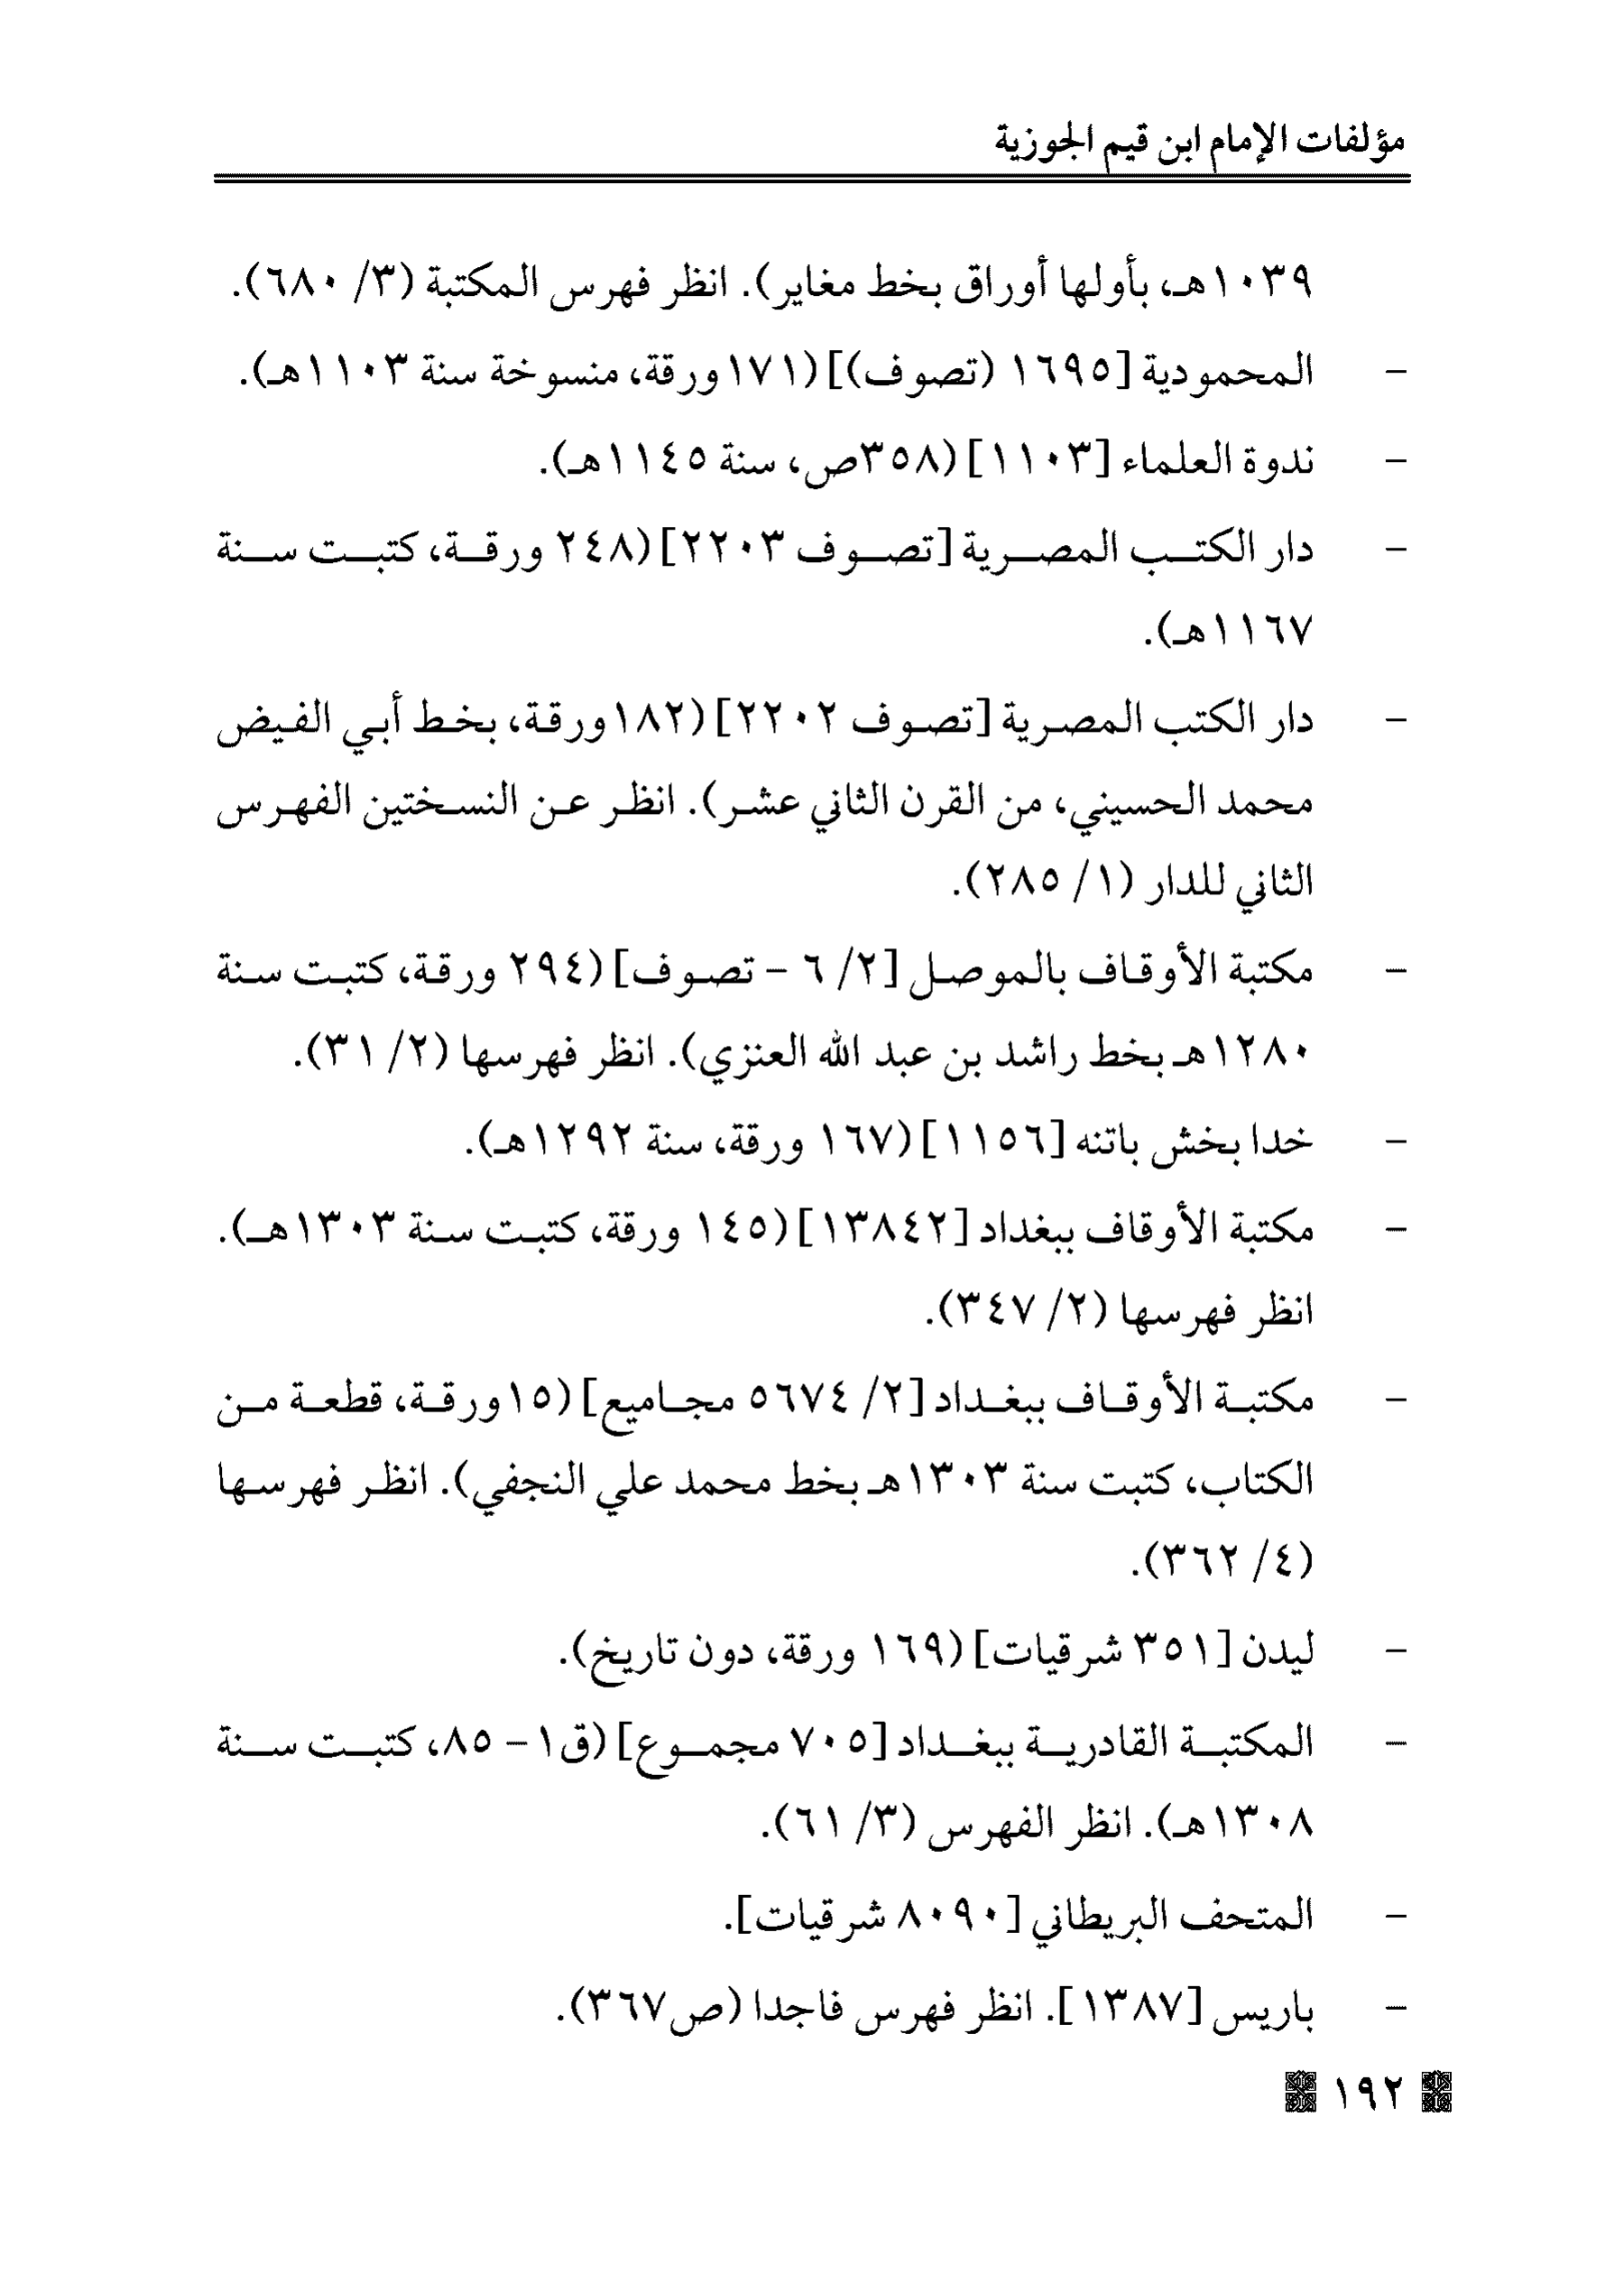 مؤلفات الإمام ابن قيم الجوزية
١٠٣٩هـ، بأولها أوراق بخط مغاير). انظر فهرس المكتبة (٣/ ٦٨٠).
- المحمودية [١٦٩٥ (تصوف)] (١٧١ورقة، منسوخة سنة ١١٠٣هـ).
- ندوة العلماء [١١٠٣] (٣٥٨ص، سنة ١١٤٥هـ).
- دار الكتب المصرية [تصوف ٢٢٠٣] (٢٤٨ ورقة، كتبت سنة
١١٦٧هـ).
- دار الكتب المصرية [تصوف ٢٢٠٢] (١٨٢ورقة، بخط أبي الفيض
محمد الحسيني، من القرن الثاني عشر). انظر عن النسختين الفهرس
الثاني للدار (١/ ٢٨٥).
- مكتبة الأوقاف بالموصل [٢/ ٦ - تصوف] (٢٩٤ ورقة، كتبت سنة
١٢٨٠هـ بخط راشد بن عبد الله العنزي). انظر فهرسها (٢/ ٣١).
- خدا بخش باتنه [١١٥٦] (١٦٧ ورقة، سنة ١٢٩٢هـ).
- مكتبة الأوقاف ببغداد [١٣٨٤٢] (١٤٥ ورقة، كتبت سنة ١٣٠٣هـ).
انظر فهرسها (٢/ ٣٤٧).
- مكتبة الأوقاف ببغداد [٢/ ٥٦٧٤ مجاميع] (١٥ورقة، قطعة من
الكتاب، كتبت سنة ١٣٠٣هـ بخط محمد علي النجفي). انظر فهرسها
(٤/ ٣٦٢).
- ليدن [٣٥١ شرقيات] (١٦٩ ورقة، دون تاريخ).
- المكتبة القادرية ببغداد [٧٠٥ مجموع] (ق١- ٨٥، كتبت سنة
١٣٠٨هـ). انظر الفهرس (٣/ ٦١).
- المتحف البريطاني [٨٠٩٠ شرقيات].
- باريس [١٣٨٧]. انظر فهرس فاجدا (ص٣٦٧).
١٩٢